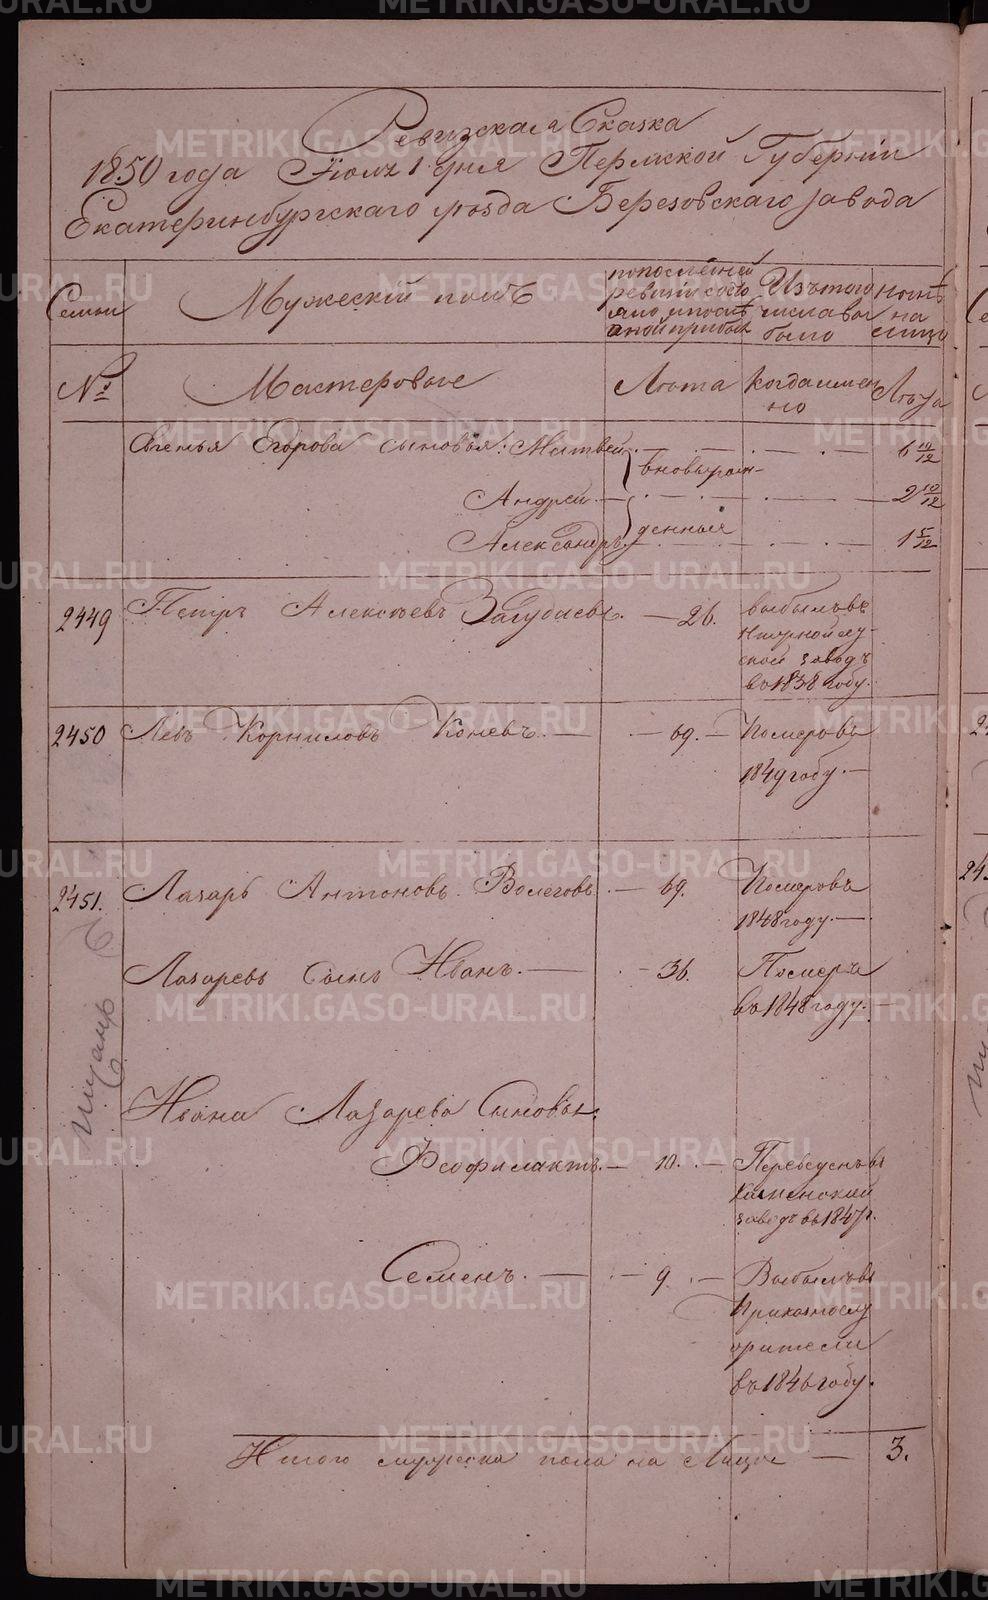 Ревизская Сказка
1850 года Июля 1 дня Пермской Губернии
Екатеринбургскаго уезда Березовскаго завода
Семьи
Мужескій полъ
по последней ревизіи состояло и после оной прибыло
Изъ того числа выбыло
Ныне на лицо
№
Мастеровые
Лета
когда именно
Лета
Евгенья Егорова сыновья: Матвей 6 10/12
вновьрож-
Андрей 2 10/12
денныя
Александръ 1 5/12
2449 Петръ Алексеевъ Загудаевъ. — 26. выбылъ въ
заводъ
въ 1838 году.
2450 Левъ Корниловъ Коневъ — 69. — Померъ въ
1849 году. —
2451. Лазарь Антоновъ Волеговъ — 69. Померъ въ
1848 году. —
Лазаревъ Сынъ Иванъ. — 36. Померъ
въ 1848 году. —
Ивана Лазарева Сыновья:
Феофилактъ. — 10. — Переведенъ въ
Каменской
заводъ въ 1847 г.
Семенъ. — 9. — Выбылъ въ
Приказнослу
жители
въ 1846 году.
Итого мужеска пола на Лицо — 3.
METRIKI.GASO-URAL.RU